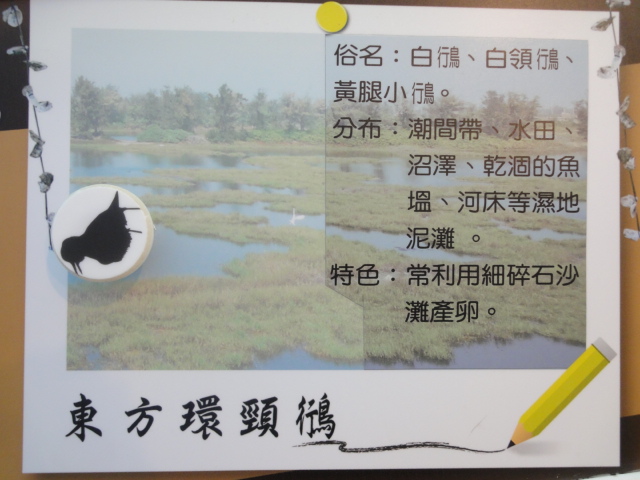 俗名：白鴴、白領鴴、
黃腿小鴴。
分布：潮間帶、水田、
沼澤、乾涸的魚
塭、河床等濕地
泥灘。
特色：常利用細碎石沙
灘產卵。
東方環頸鴴